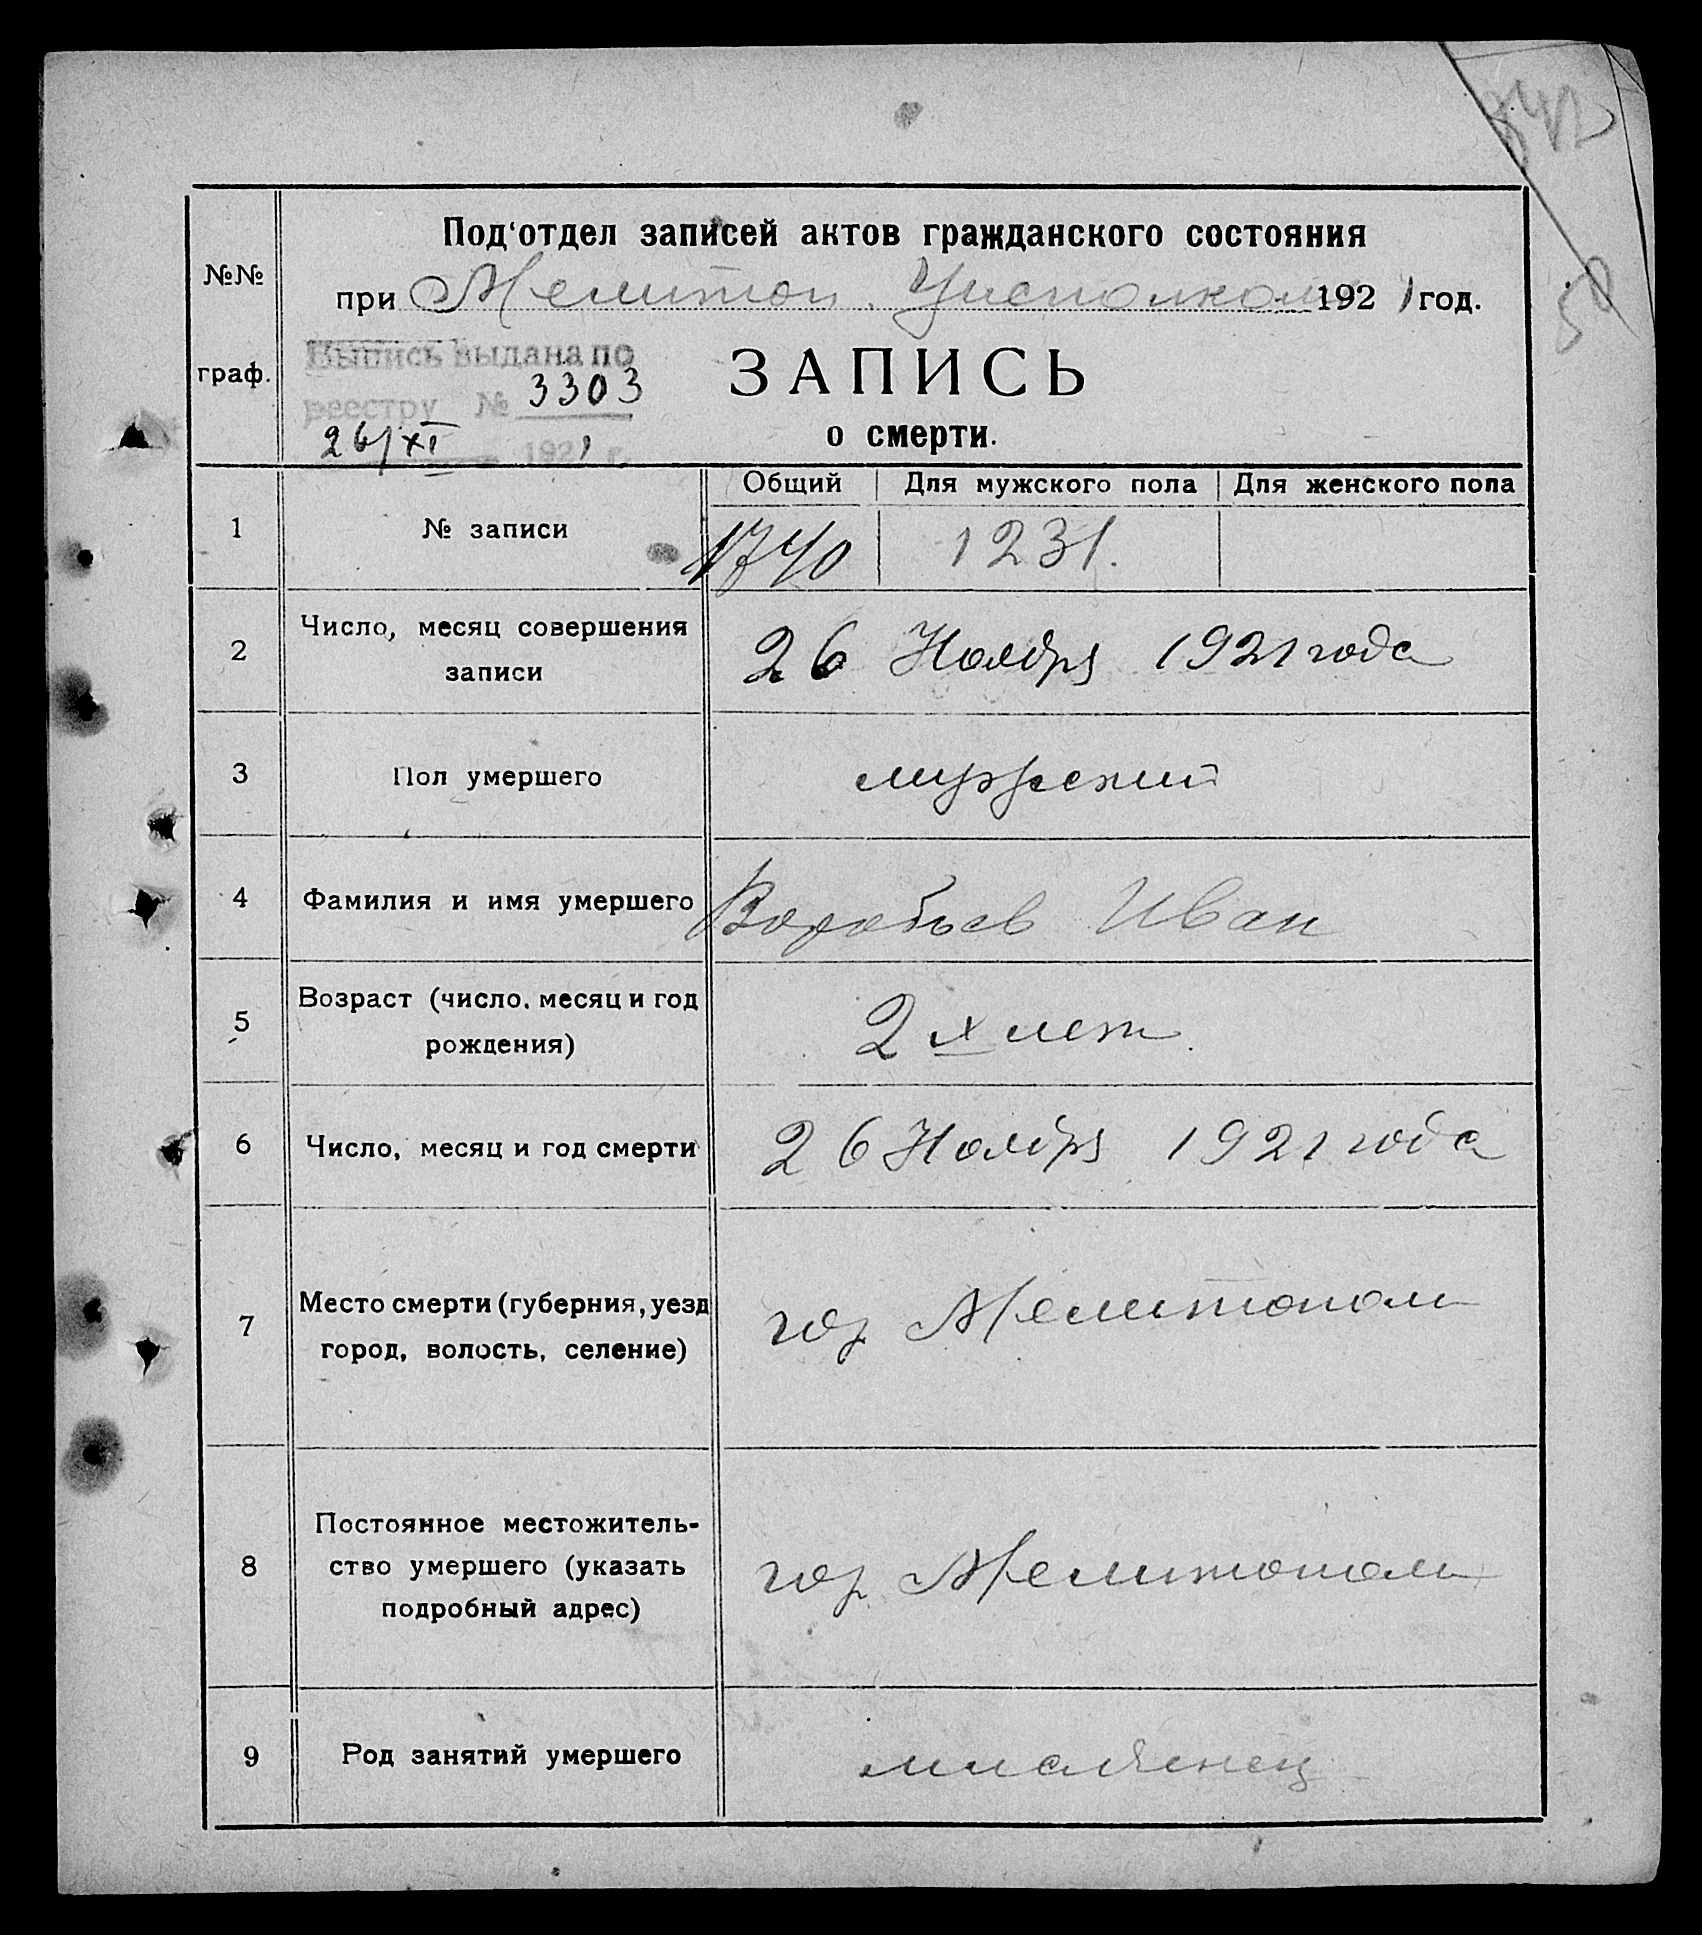 Под'отдел записей актов гражданского состояния
№№
при Мелитоп. Уисполком 1921 год.
Выпись выдана по
реестру № 3303
26/XI 1921 г.
граф.
ЗАПИСЬ
о смерти.
Общий Для мужского пола Для женского пола
1 № записи 1740 1231.
2 Число, месяц совершения
записи
26 Ноября 1921 года
3 Пол умершего мужский
4 Фамилия и имя умершего Воробьев Иван
5 Возраст (число, месяц и год
рождения)
2х лет.
6 Число, месяц и год смерти 26 Ноября 1921 года
7 Место смерти (губерния, уезд
город, волость, селение)
гор Мелитополь
8 Постоянное местожитель-
ство умершего (указать
подробный адрес)
гор Мелитополь
9 Род занятий умершего
50